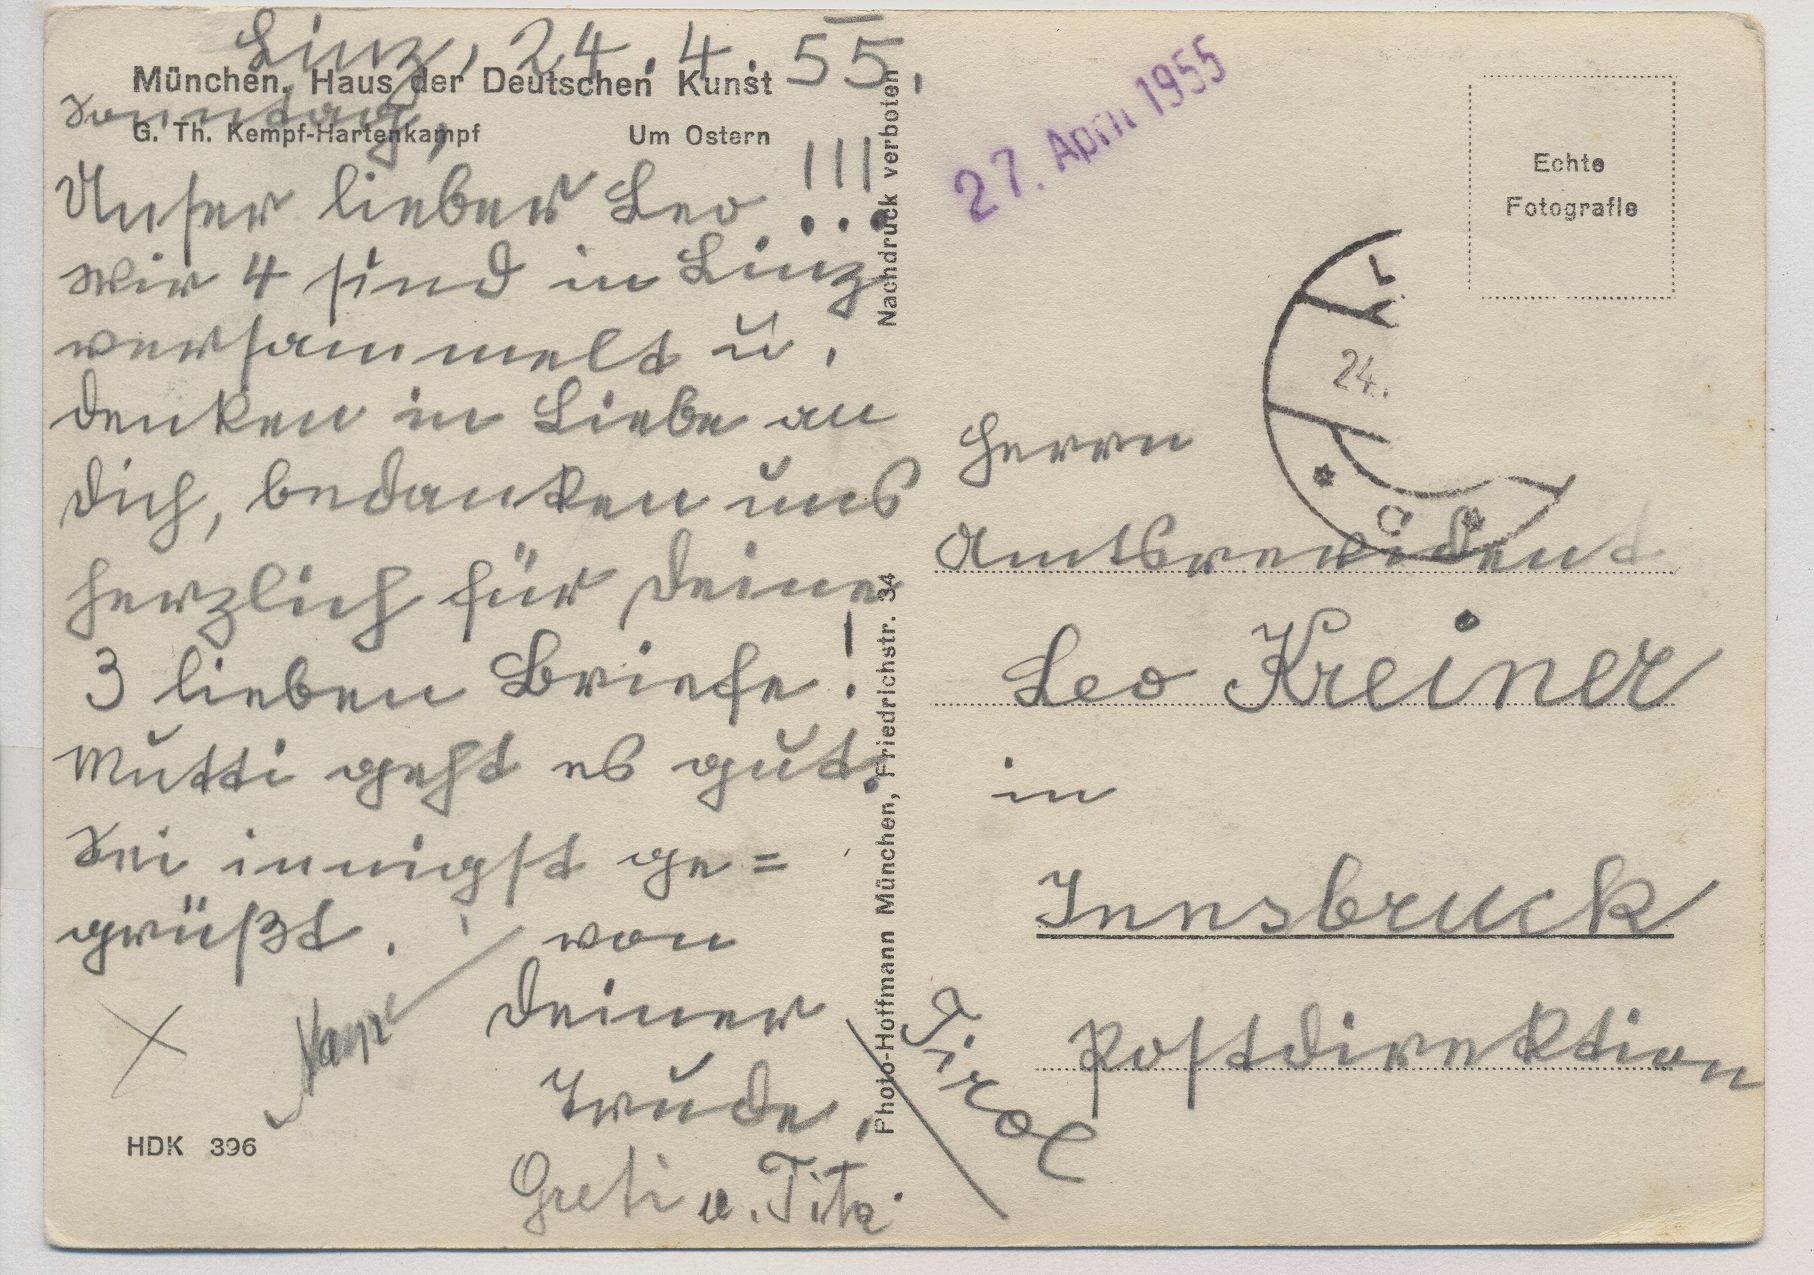 Linz, 24.4.55.
München, Haus der Deutschen Kunst
Sonntag,
G. Th. Kempf-Hartenkampf Um Ostern
Unser lieber Leo!!!
Wir 4 sind in Linz
versammelt u.
denken in Liebe an
Dich, bedanken uns
herzlich für Deine
3 lieben Briefe!
Mutti geht es gut.
Sei innigst ge=
grüßt. von
Deiner
Trude,
Greti u. Tita.
HDK 396
Nachdruck verboten
Photo-Hoffmann München, Friedrichstr. 34
27. April 1955
Echte
Fotografie
24.
Herrn
Amtsrevident
Leo Kreiner
in
Innsbruck
Postdirektion
Tirol